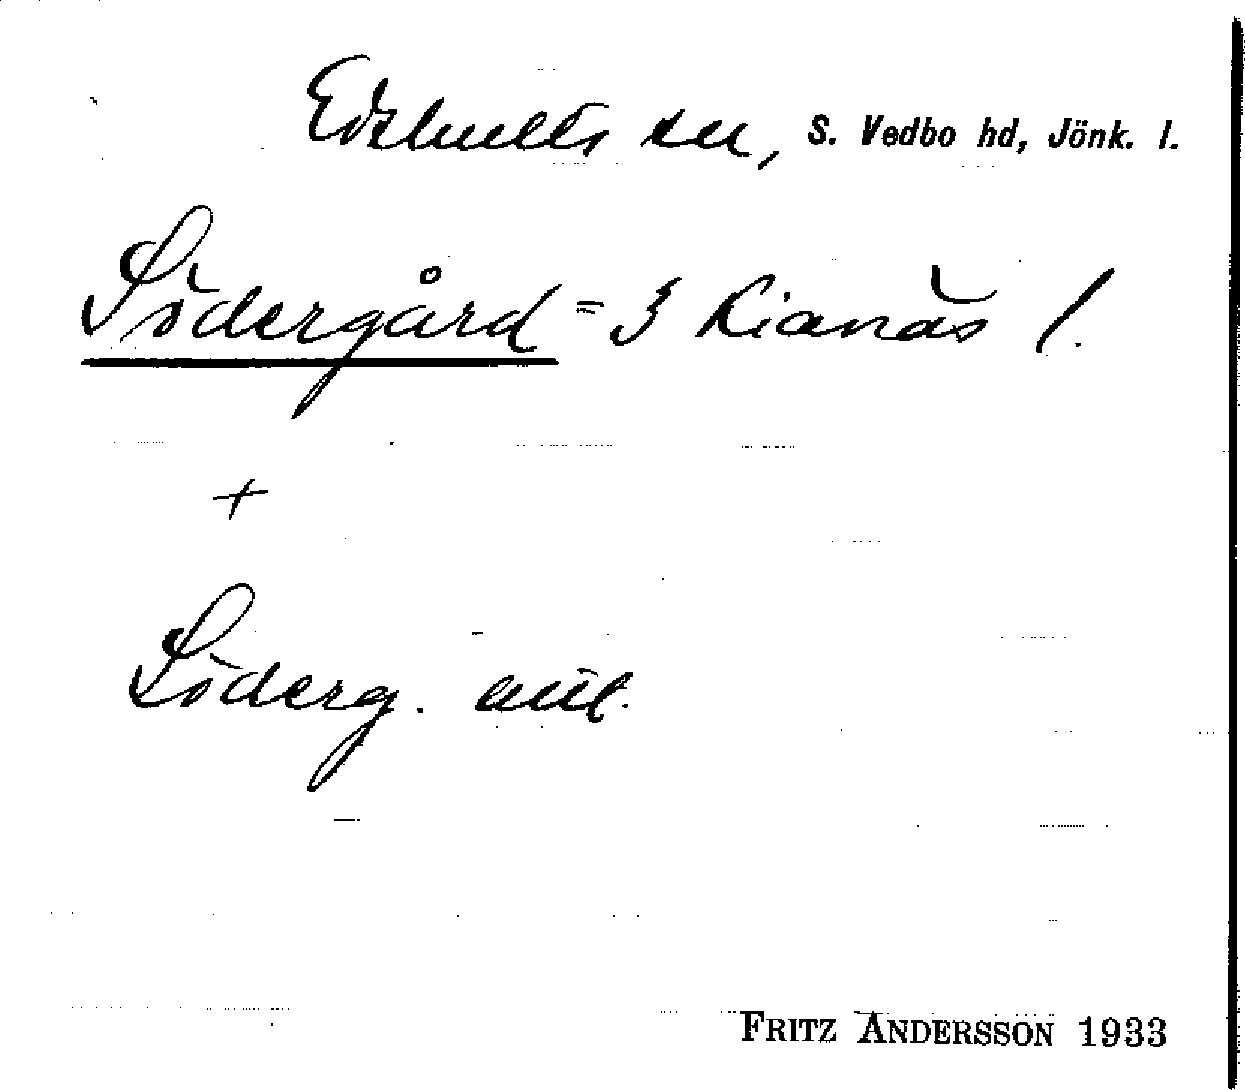 Edshults sn, S. Vedbo hd, Jönk. l.
Södergård = 3 Lianäs 1.
+
Söderg. anl.
FRITZ ANDERSSON 1933